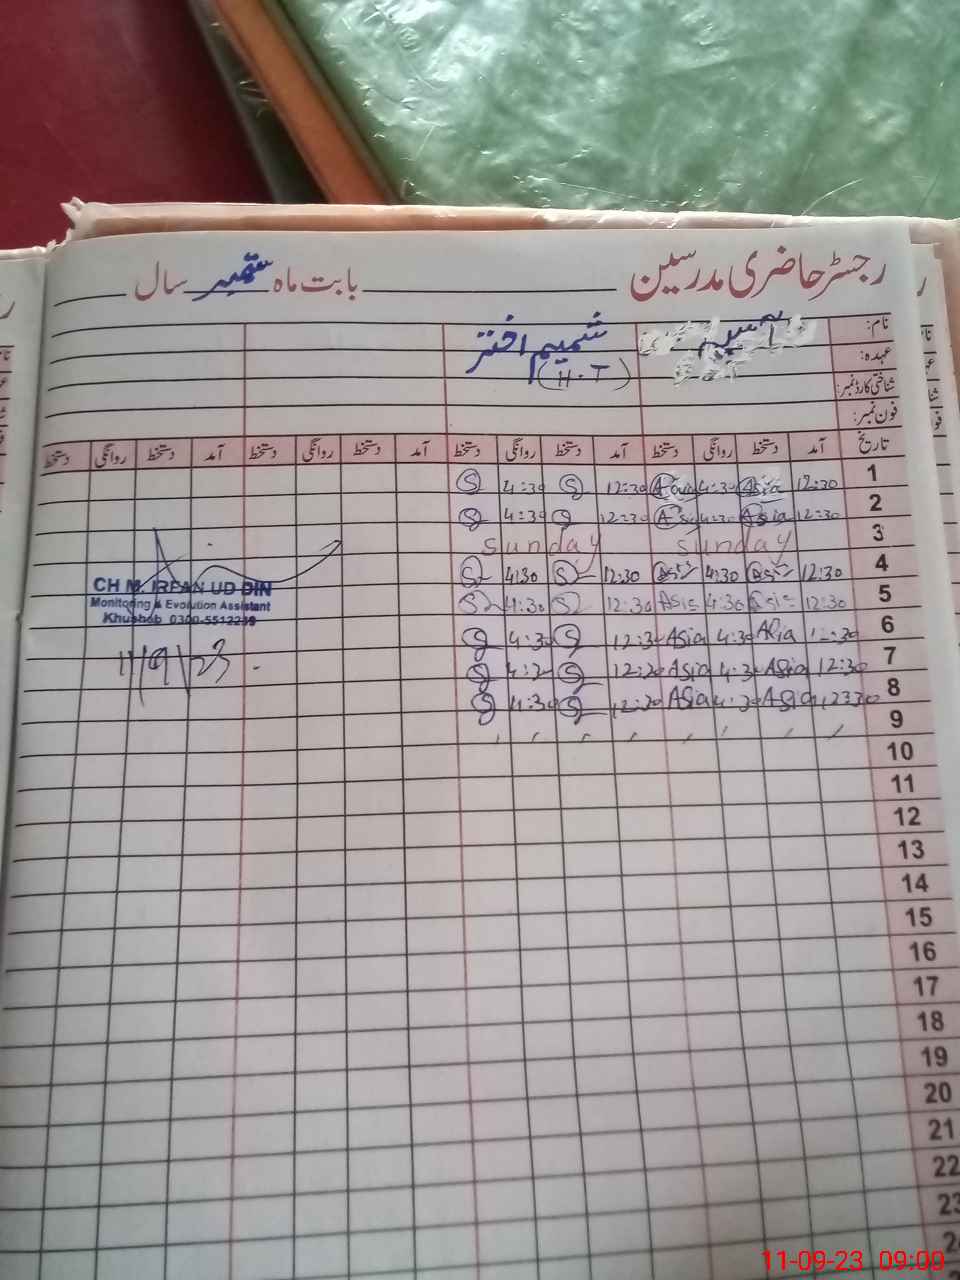 رجسٹر حاضری مدرسین بابت ماہ ستمبر سال
نام: آسیہ شمیم اختر
عہدہ: (H.T)
شناختی کارڈ نمبر:
فون نمبر:
تاریخ آمد دستخط روانگی دستخط آمد دستخط روانگی دستخط آمد دستخط روانگی دستخط آمد دستخط روانگی دستخط
1 12:30 Asia 4:30 Asia 12:30 S 4:30 S
2 12:30 Asia 4:30 Asia 12:30 S 4:30 S
3 Sunday Sunday
4 12:30 Asia 4:30 Asia 12:30 S 4:30 S
5 12:30 Asia 4:30 Asia 12:30 S 4:30 S
6 12:30 Asia 4:30 Asia 12:30 S 4:30 S
7 12:30 Asia 4:30 Asia 12:20 S 4:30 S
8 12:30 Asia 4:30 Asia 12:20 S 4:30 S
9
10
11
12
13
14
15
16
17
18
19
20
21
22
23
24
CH M. IRFAN UD DIN
Monitoring & Evolution Assistant
Khushab 0300-5512239
11/9/23
11-09-23 09:00